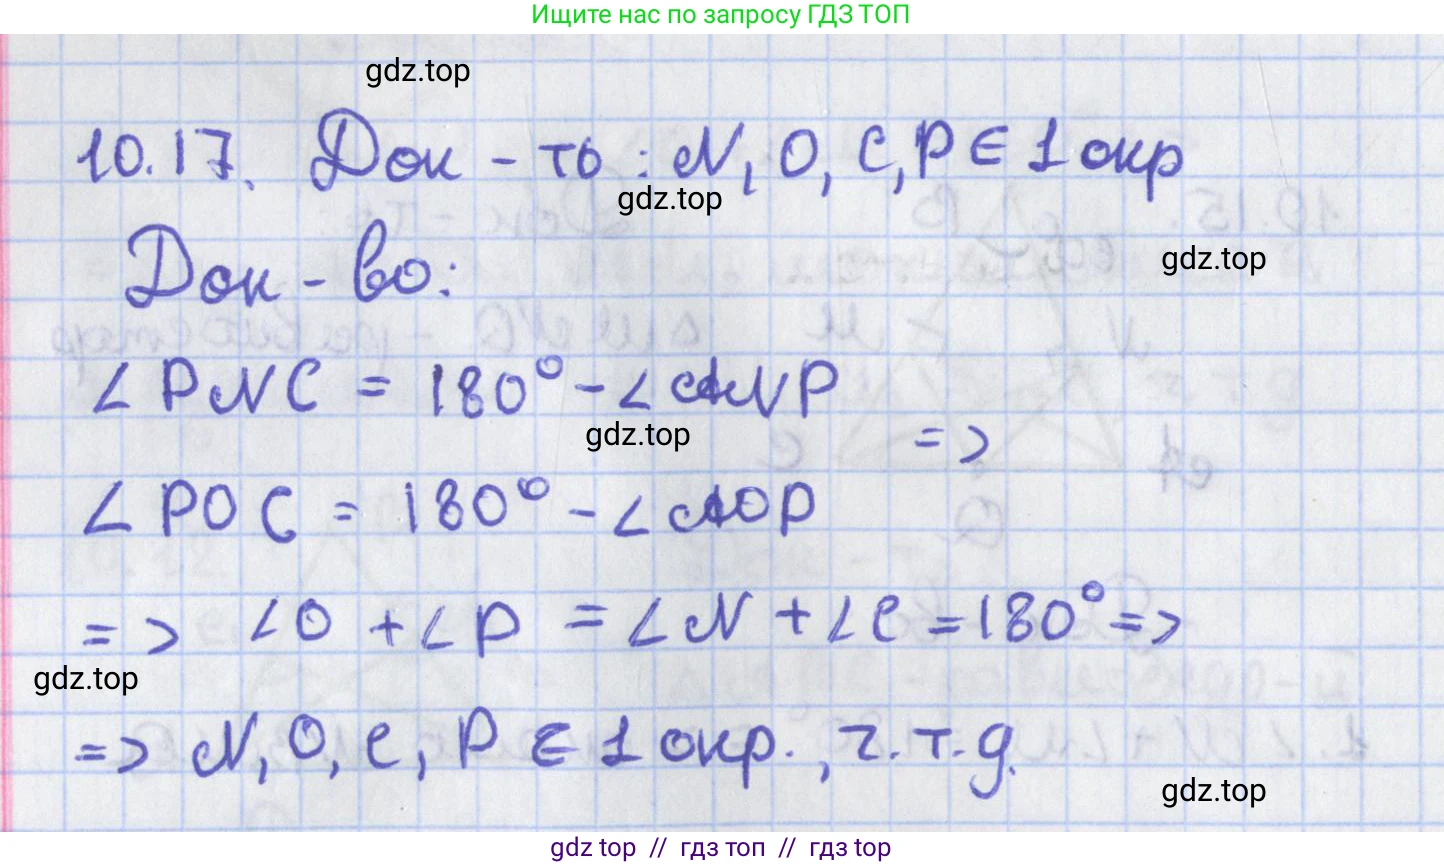 Ищите нас по запросу ГДЗ ТОП
gdz.top
10.17. Док-ть: N, O, C, P ∈ 1 окр
gdz.top
Док-во:
gdz.top
∠PNC = 180° - ∠ANP
gdz.top
=>
∠POC = 180° - ∠AOP
=> ∠O + ∠P = ∠N + ∠C = 180° =>
gdz.top
=> N, O, C, P ∈ 1 окр., ч.т.д.
gdz.top
gdz top // гдз топ // гдз top